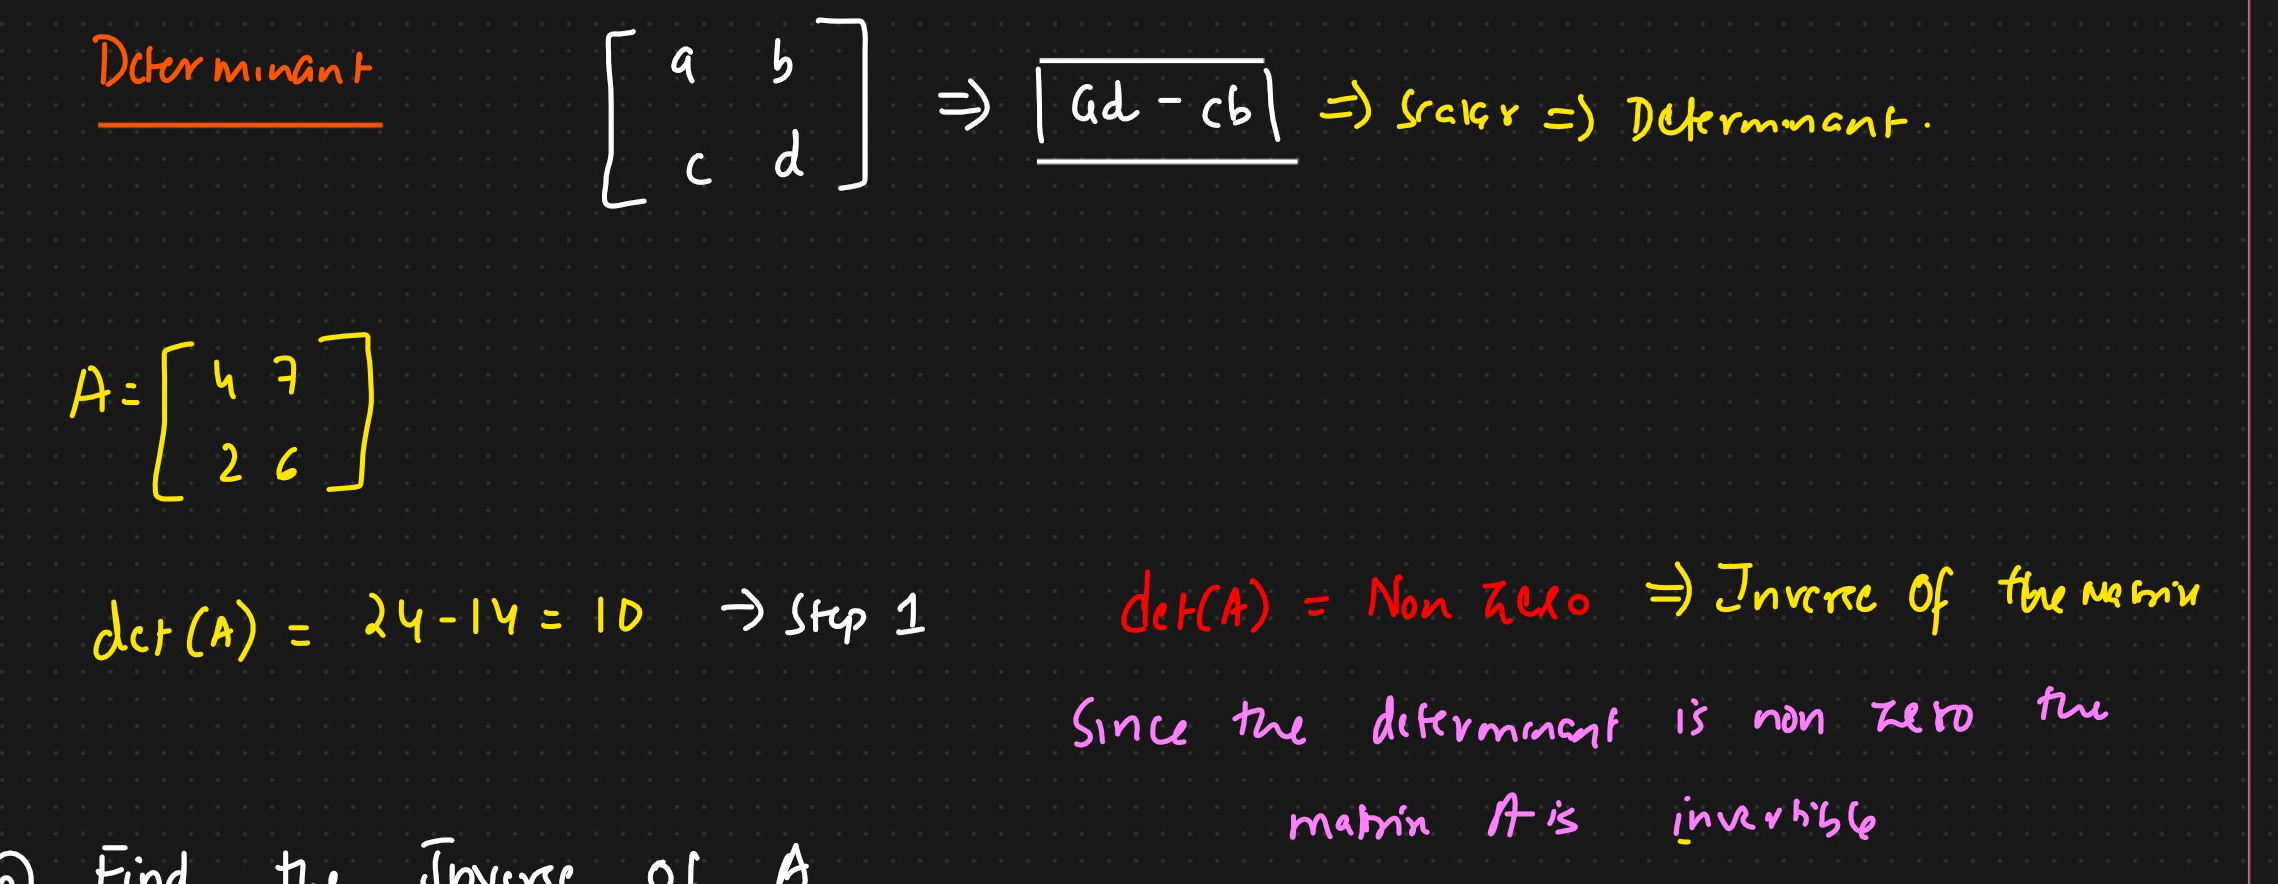 Determinant
[ a b
c d ] ⇒ |ad - cb| ⇒ Scalar ⇒ Determinant.
A = [ 4 7
2 6 ]
det(A) = 24 - 14 = 10 → Step 1
det(A) = Non zero ⇒ Inverse of the matrix
Since the determinant is non zero the
matrix A is invertible
Find the Inverse of A